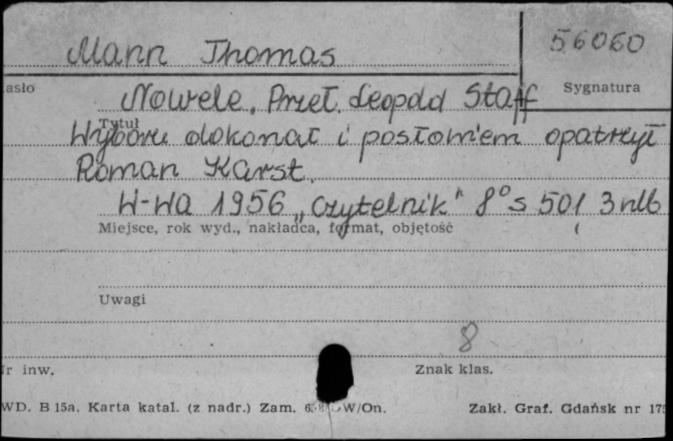 Mann Thomas
56060
asło
Sygnatura
Nowele. Przeł. Leopold Staff
Tytuł
Wyboru dokonał i posłowiem opatrzył
Roman Karst.
W-wa 1956 „Czytelnik" 8° s 501, 3 nlb
Miejsce, rok wyd., nakładca, format, objętość
Uwagi
8
r inw.
Znak klas.
WD. B 15a. Karta katal. (z nadr.) Zam. W/On.
Zakł. Graf. Gdańsk nr 175